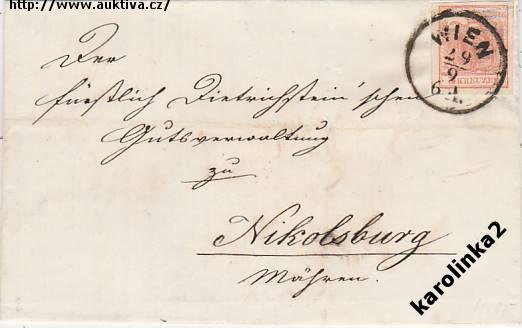 http://www.auktiva.cz/
WIEN
29
9
6 A.
KREUZER
Der
fürstlich Dietrichstein'schen
Gutsverwaltung
zu
Nikolsburg
Mähren.
karolinka2